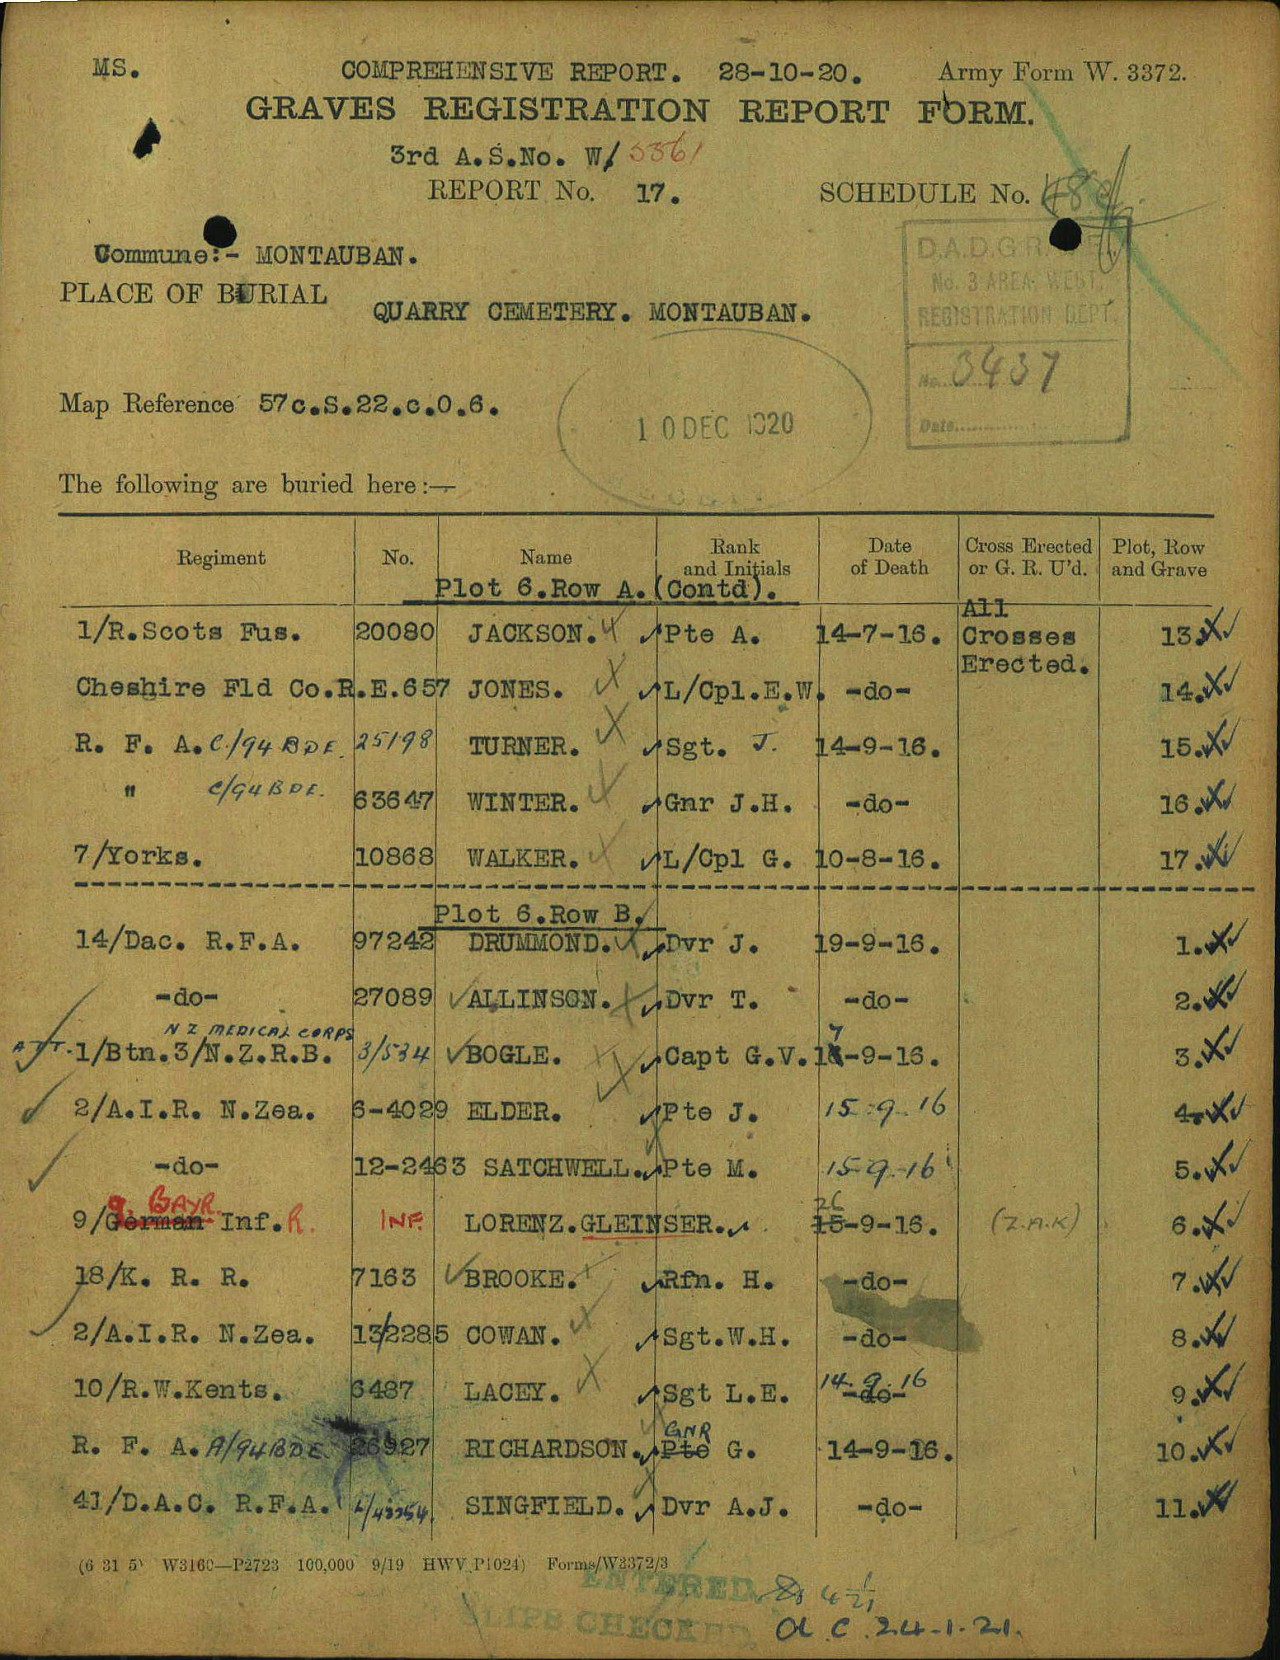 MS. COMPREHENSIVE REPORT. 28-10-20. Army Form W. 3372.
GRAVES REGISTRATION REPORT FORM.
3rd A.S.No. W/ 5361
REPORT No. 17. SCHEDULE No.
Commune:- MONTAUBAN.
PLACE OF BURIAL
QUARRY CEMETERY. MONTAUBAN.
D.A.D.G.R.
No. 3 AREA. WEST.
REGISTRATION DEPT.
No. 3437
Date
Map Reference 57c.S.22.c.0.6.
10 DEC 1920
The following are buried here:—
Regiment No. Name Rank and Initials Date of Death Cross Erected or G. R. U'd. Plot, Row and Grave
Plot 6.Row A.(Contd).
1/R.Scots Fus. 20080 JACKSON. Pte A. 14-7-16. All Crosses Erected. 13.
Cheshire Fld Co.R.E. 657 JONES. L/Cpl.E.W. -do- 14.
R. F. A. C/94 BDE. 25198 TURNER. Sgt. J. 14-9-16. 15.
" C/94 BDE. 63647 WINTER. Gnr J.H. -do- 16.
7/Yorks. 10868 WALKER. L/Cpl G. 10-8-16. 17.
Plot 6.Row B.
14/Dac. R.F.A. 97242 DRUMMOND. Dvr J. 19-9-16. 1.
-do- 27089 ALLINSON. Dvr T. -do- 2.
NZ MEDICAL CORPS
ATT. 1/Btn.3/N.Z.R.B. 3/534 BOGLE. Capt G.V. 17-9-16. 3.
2/A.I.R. N.Zea. 6-4029 ELDER. Pte J. 15.9.16 4.
-do- 12-2463 SATCHWELL. Pte M. 15.9.16 5.
9. BAYR. 26
9/German Inf. R. INF. LORENZ.GLEINSER. 15-9-16. (Z.A.K) 6.
18/K. R. R. 7163 BROOKE. Rfn. H. -do- 7.
2/A.I.R. N.Zea. 13/2285 COWAN. Sgt.W.H. -do- 8.
10/R.W.Kents. 6487 LACEY. Sgt L.E. 14.9.16 -do- 9.
GNR
R. F. A. A/94 BDE 26927 RICHARDSON. Pte G. 14-9-16. 10.
41/D.A.C. R.F.A. L/43254. SINGFIELD. Dvr A.J. -do- 11.
(6 31 5) W3160—P2723 100,000 9/19 HWV P1024) Forms/W3372/3
ENTERED
SLIPS CHECKED
24.1.21.